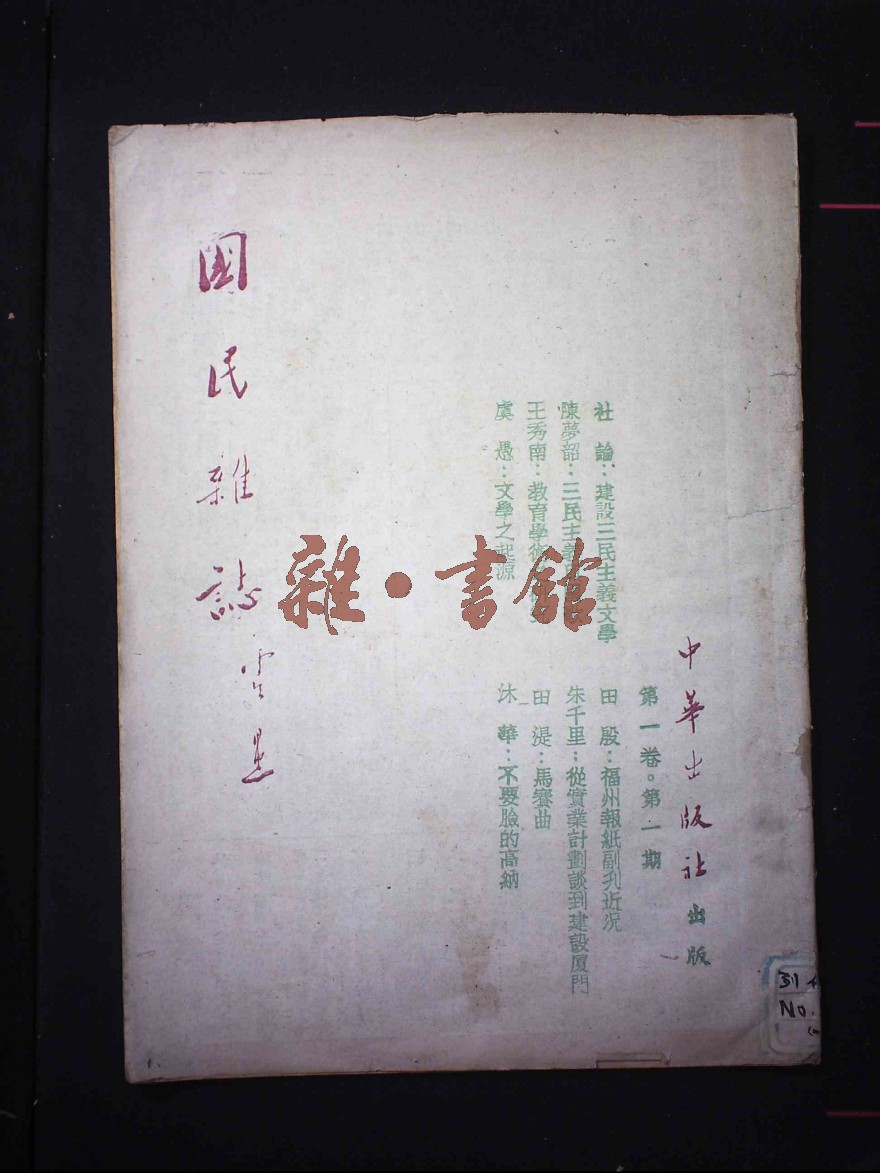 中華出版社出版
第一卷。第一期
社論：建設三民主義文學
陳夢韶：三民主義
王秀南：教育學術
虞愚：文學之起源
田殷：福州報紙副刊近況
朱千里：從實業計劃談到建設厦門
田湜：馬賽曲
沐華：不要臉的高納
國民雜誌
雜•書館
No.